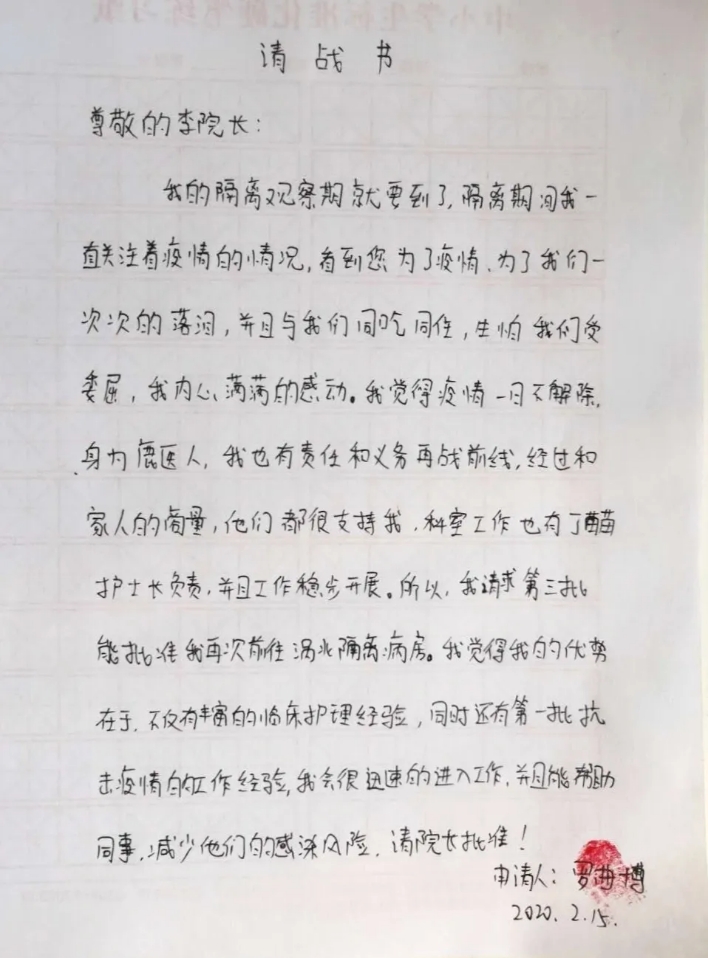 中小学生标准化硬笔练习纸
请战书
尊敬的李院长：
我的隔离观察期就要到了，隔离期间我一
直关注着疫情的情况，看到您为了疫情、为了我们一
次次的落泪，并且与我们同吃同住，生怕我们受
委屈，我内心满满的感动。我觉得疫情一日不解除，
身为鹿医人，我也有责任和义务再战前线，经过和
家人的商量，他们都很支持我，科室工作也有丁
护士长负责，并且工作稳步开展。所以，我请求第三批
能批准我再次前往涡北隔离病房。我觉得我的优势
在于，不仅有丰富的临床护理经验，同时还有第一批抗
击疫情的工作经验，我会很迅速的进入工作，并且能帮助
同事，减少他们的感染风险，请院长批准！
申请人：罗曲博
2020.2.15.